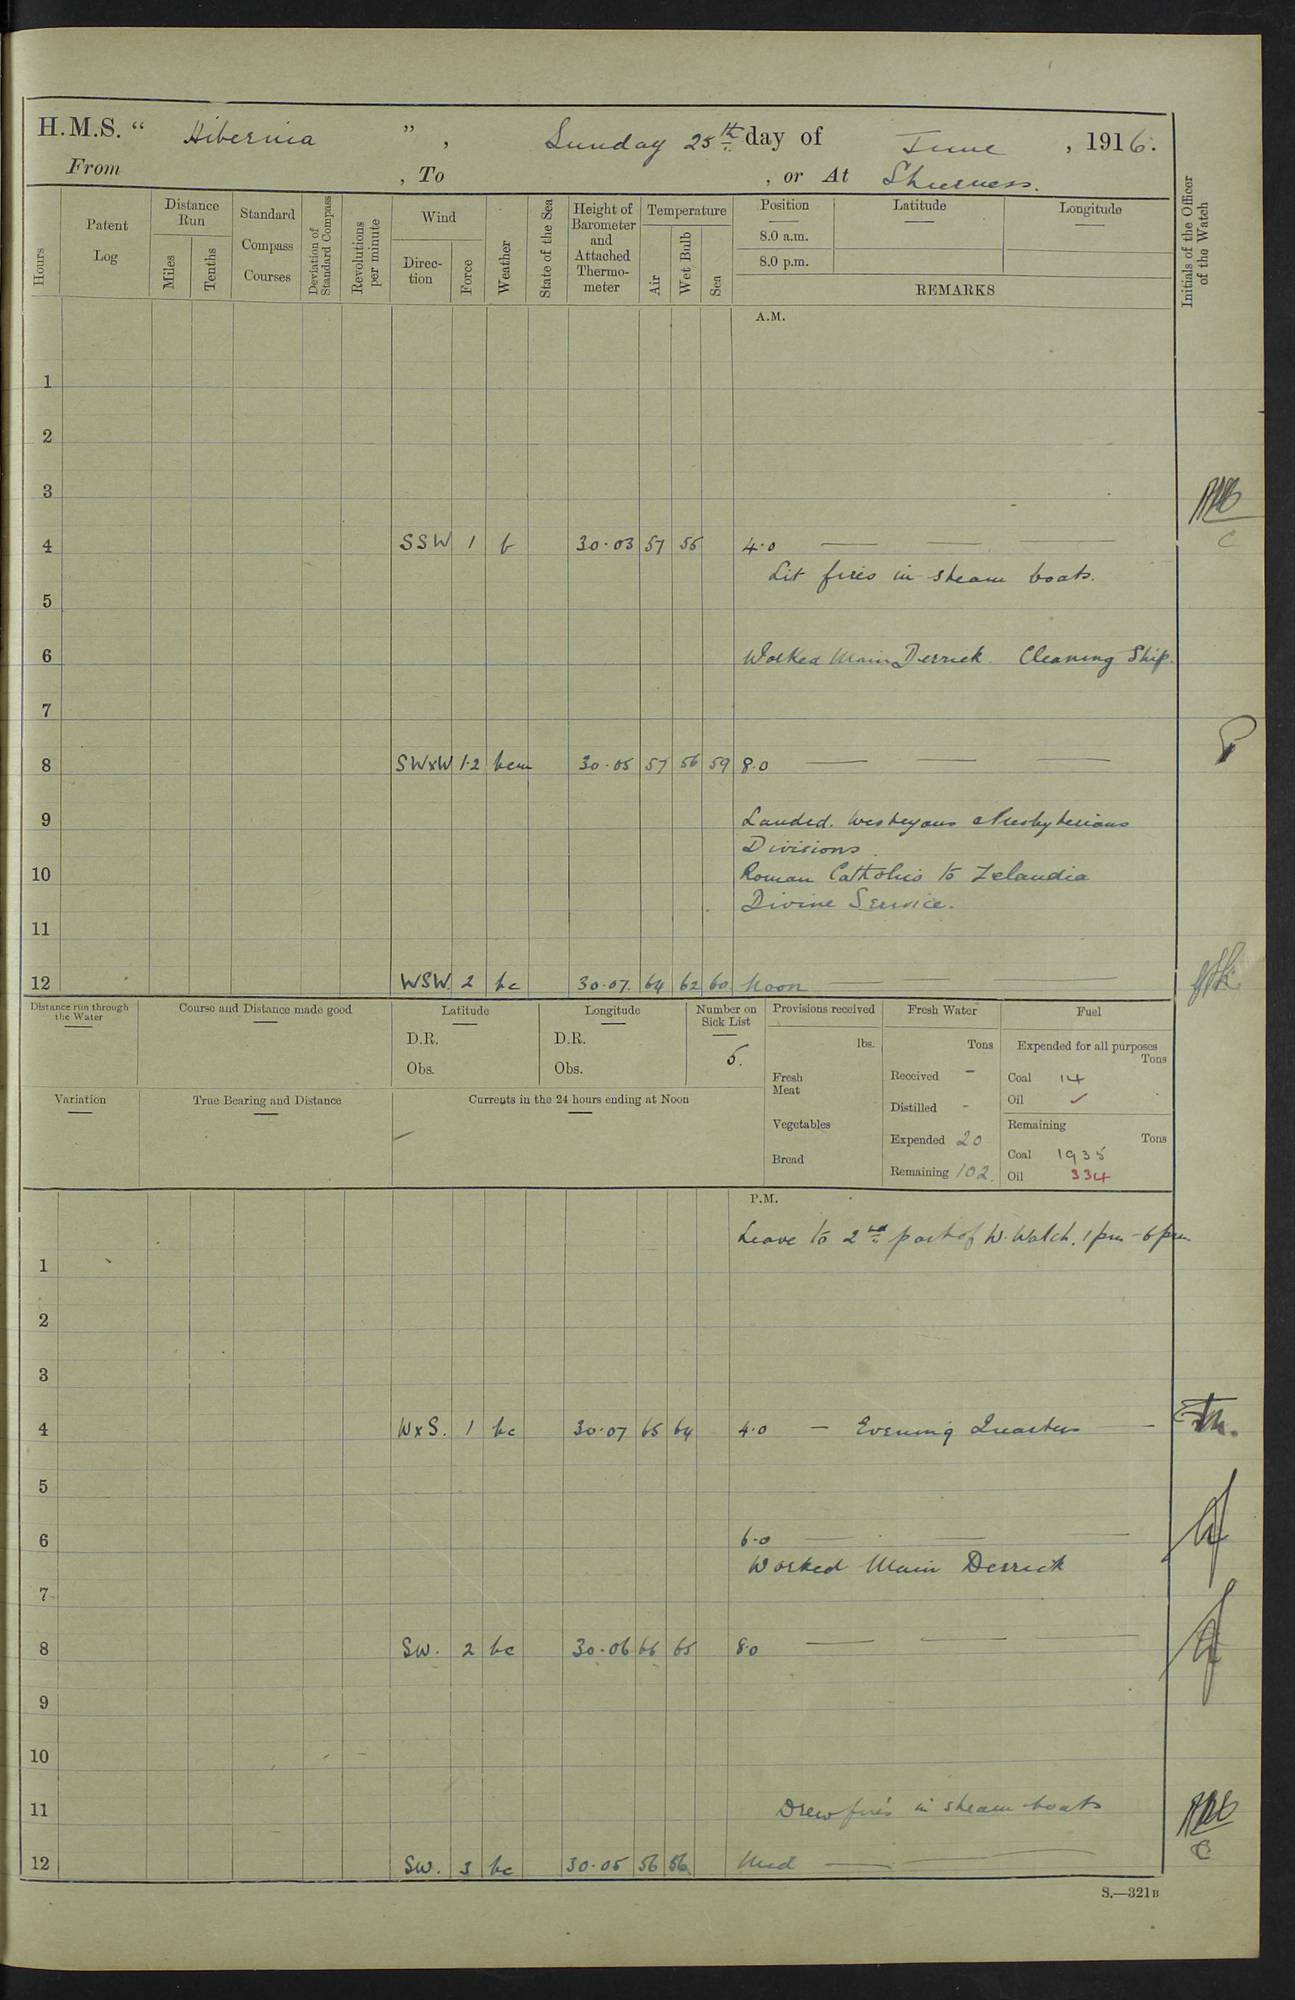 H.M.S. “ Hibernia ” , Sunday 25th day of June , 1916.
From , To , or At Sheerness.
Hours
Patent Log
Distance Run
Miles
Tenths
Standard Compass Courses
Deviation of Standard Compass
Revolutions per minute
Wind
Direc- tion
Force
Weather
State of the Sea
Height of Barometer and Attached Thermo- meter
Temperature
Air
Wet Bulb
Sea
Position
8.0 a.m.
8.0 p.m.
Latitude
Longitude
REMARKS
Initials of the Officer of the Watch
A.M.
1
2
3
4 SSW 1 b 30·03 57 55 4·0 — — —
Lit fires in steam boats.
5
6 Worked Main Derrick. Cleaning Ship.
7
8 SWxW 1·2 bcm 30·05 57 56 59 8·0 — — —
9 Landed. Wesleyans & Presbyterians
Divisions.
10 Roman Catholics to Zelandia
Divine Service.
11
12 WSW. 2 bc 30·07. 64 62 60 Noon — — —
Distance run through the Water
Course and Distance made good
Latitude
D.R.
Obs.
Longitude
D.R.
Obs.
Number on Sick List
5.
Provisions received
lbs.
Fresh Meat
Vegetables
Bread
Fresh Water
Tons
Received -
Distilled -
Expended 20
Remaining 102.
Fuel
Expended for all purposes
Tons
Coal 14
Oil ✓
Remaining
Tons
Coal 1935
Oil 334
Variation
True Bearing and Distance
Currents in the 24 hours ending at Noon
P.M.
Leave to 2nd part of W. Watch. 1pm - 6pm
1
2
3
4 WxS. 1 bc 30·07 65 64 4·0 — Evening Quarters —
5
6 6·0 — — —
Worked Main Derrick
7
8 SW. 2 bc 30·06 66 65 8·0 — — —
9
10
11 Drew fires in steam boats
12 SW. 3 bc 30·05 56 56. Mid — — —
S.—321B